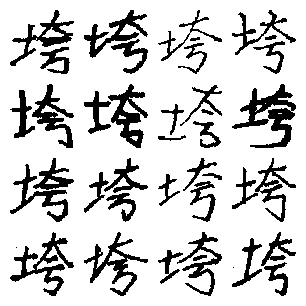 垮垮垮垮
垮垮垮垮
垮垮垮垮
垮垮垮垮